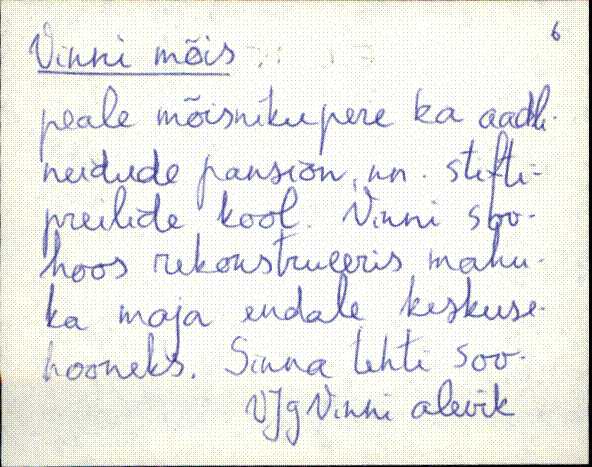 6
Vinni mõis
peale mõisnikupere ka aadli-
neidude pansion, nn. stifti-
preilide kool. Vinni sov-
hoos rekonstrueeris mahu-
ka maja endale keskuse-
hooneks. Sinna tehti soo-
VJg Vinni alevik